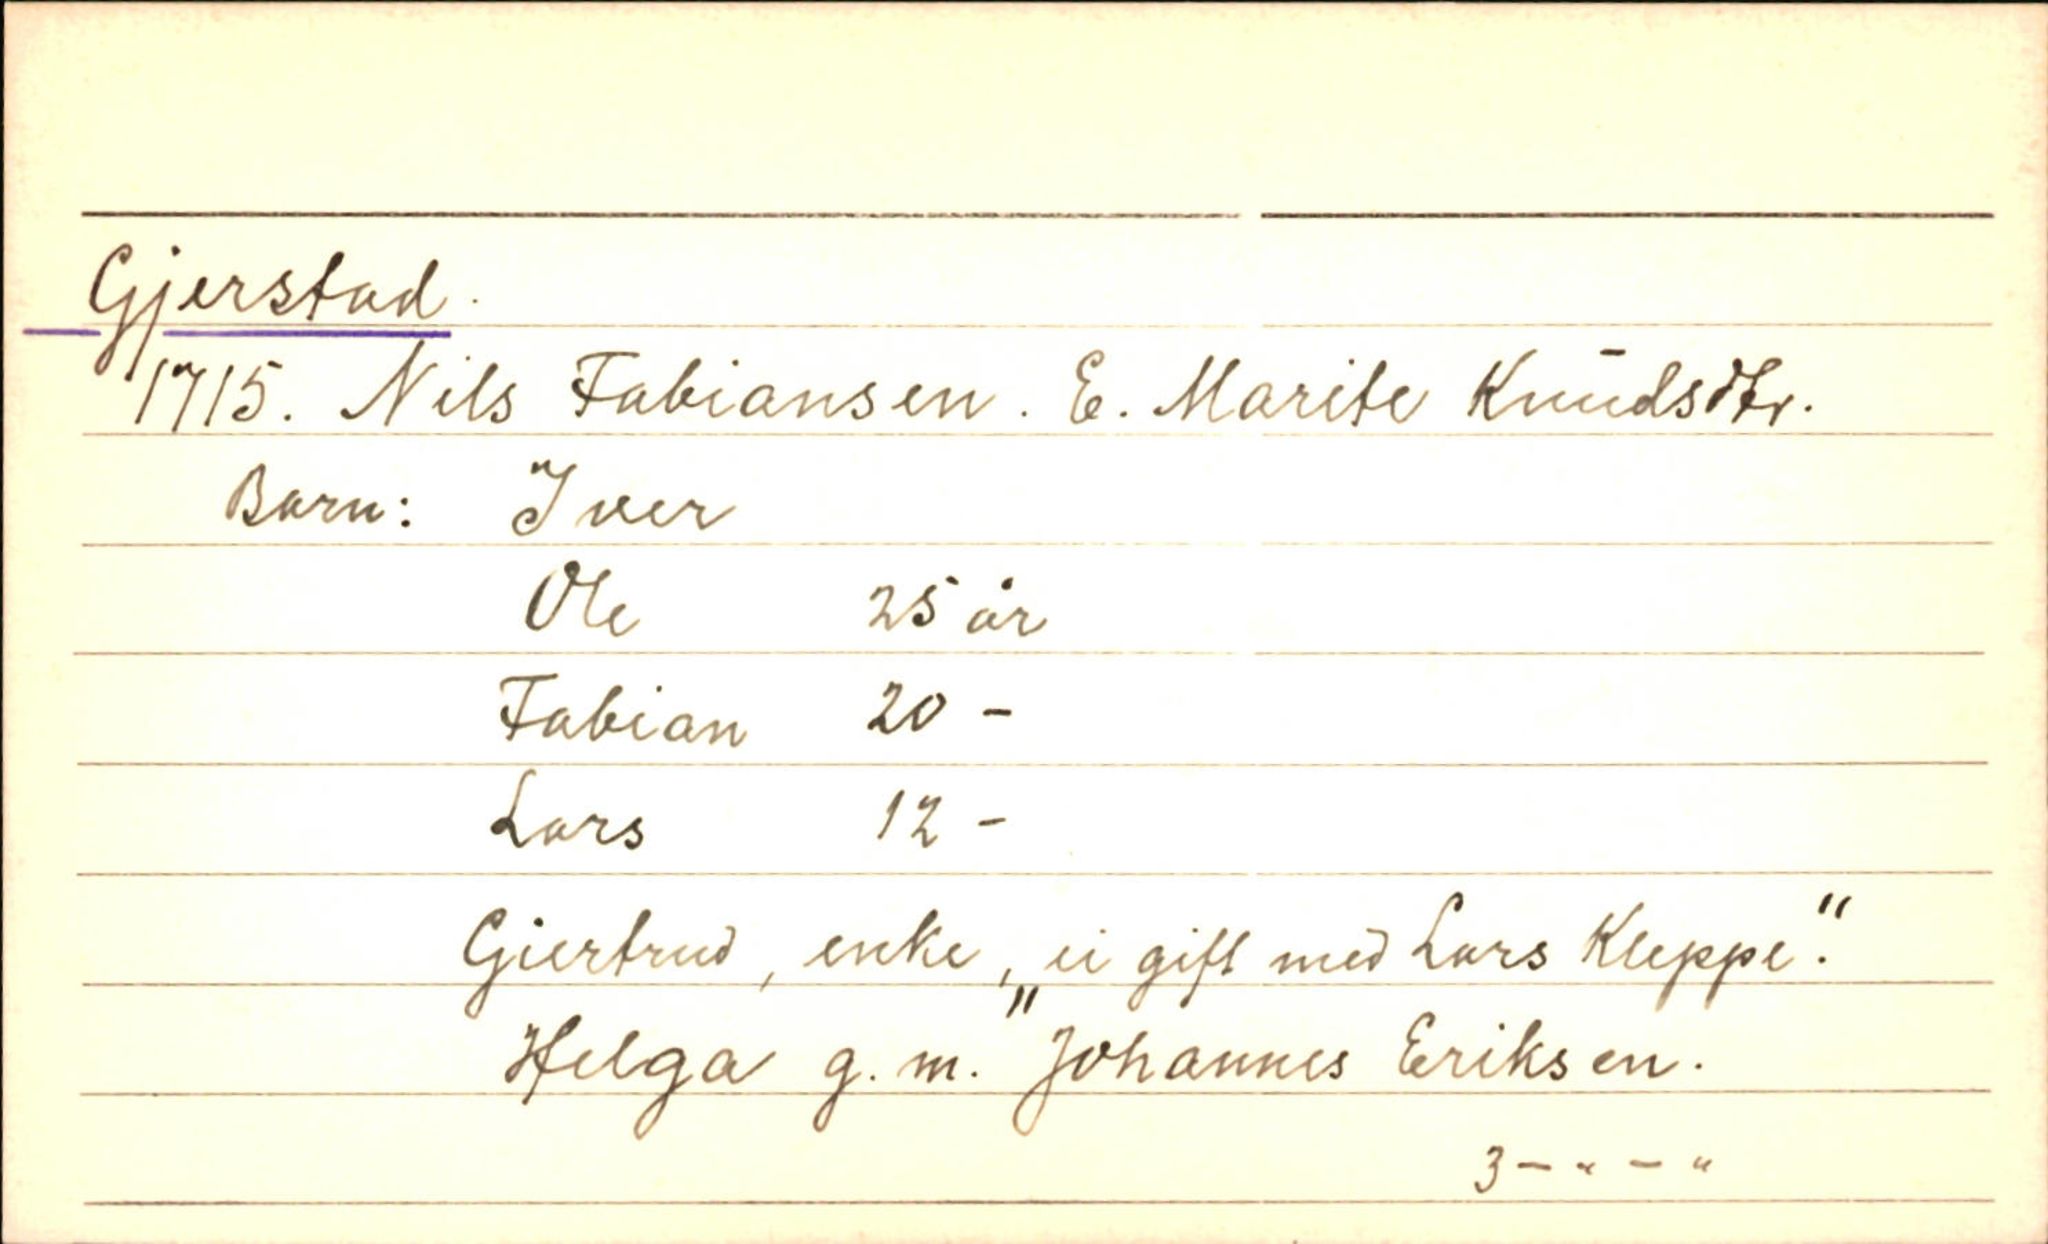 Gjerstad.
1715. Nils Fabiansen. E. Marite Knudsdtr.
Barn: Iver
Ole 25 år
Fabian 20 -
Lars 12 -
Giertrud, enke, „ei gift med Lars Kleppe".
Helga g. m. Johannes Eriksen.
3 - " - "